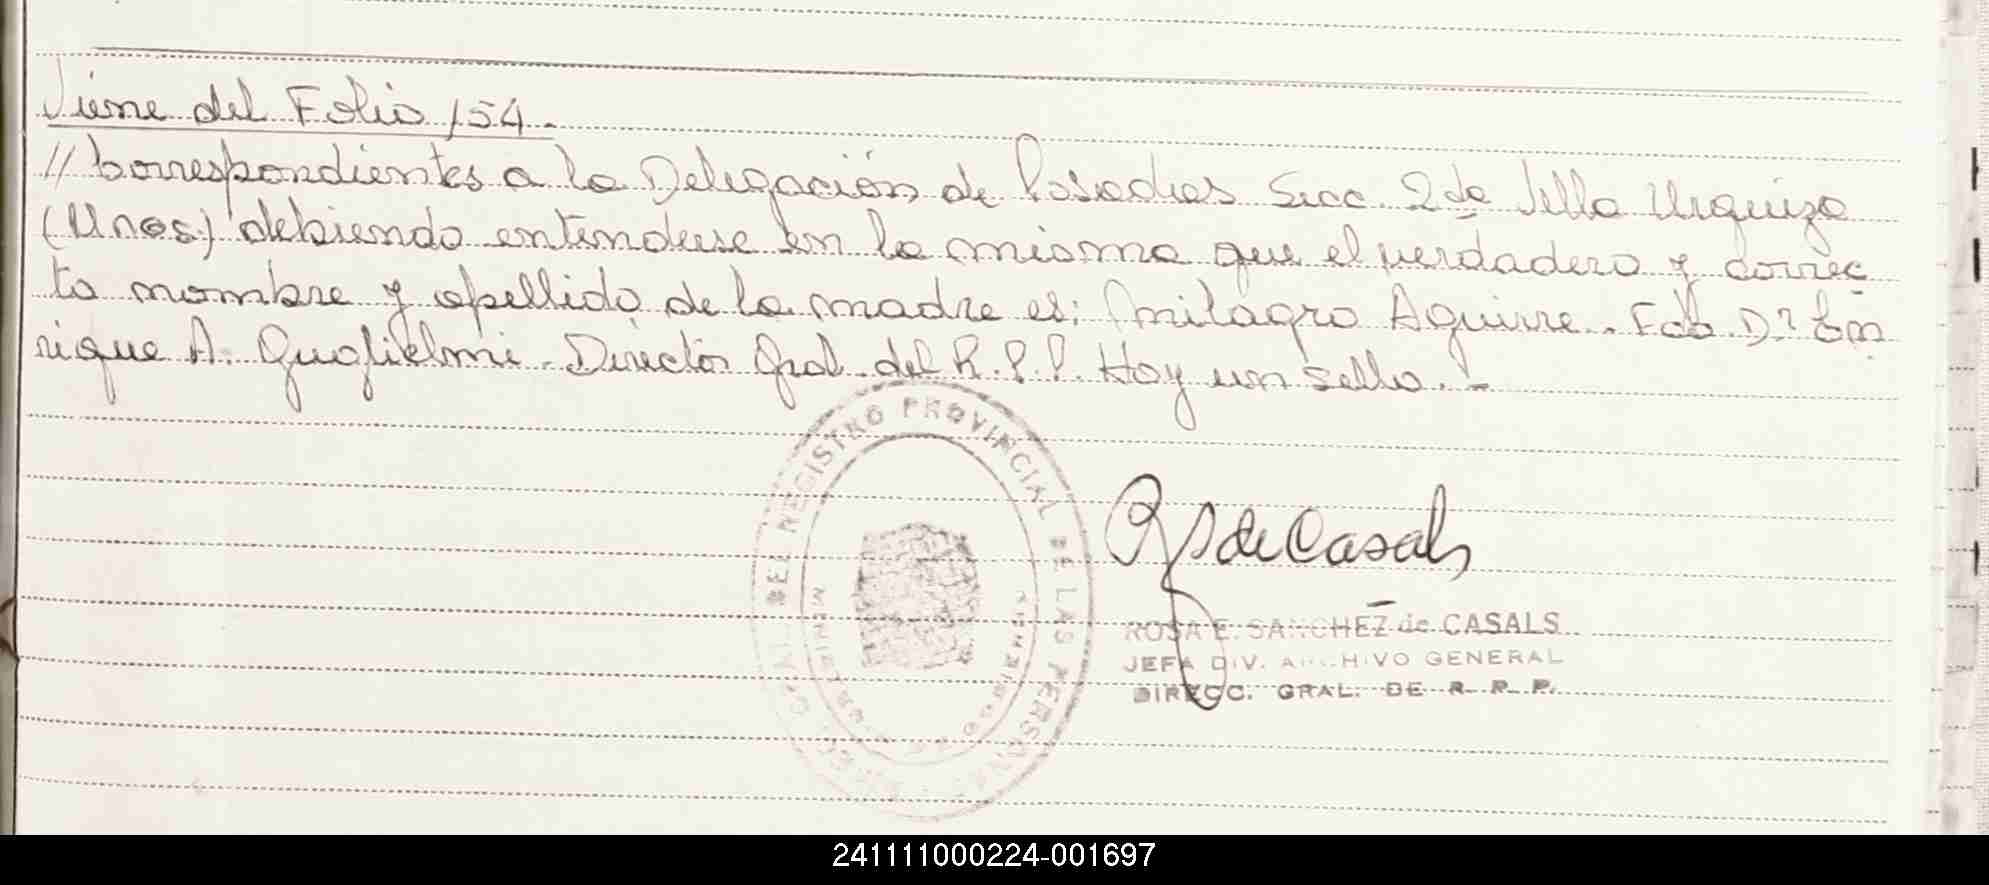 Viene del Folio 154.-
// Correspondientes a la Delegación de Posadas Secc. 2da Villa Urquiza
(Unos) debiendo entenderse en la misma que el verdadero y correc
to nombre y apellido de la madre es: Milagro Aguirre. Fdo D? En
rique A. Guglielmi. Director Gral. del R.P.P. Hay un sello.-
REGISTRO PROVINCIAL DE LAS PERSONAS
MISIONES
R S de Casals
ROSA E. SANCHEZ de CASALS
JEFA DIV. ARCHIVO GENERAL
DIRECC. GRAL. DE R. P. P.
241111000224-001697